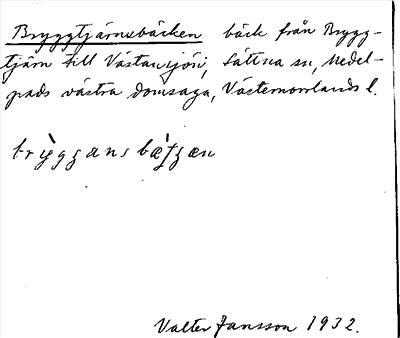 Bryggtjärnsbäcken bäck från Brygg-
tjärn till Västansjön, Sättna sn, Medel-
pads västra domsaga, Västernorrlands l.
Valter Jansson 1932.